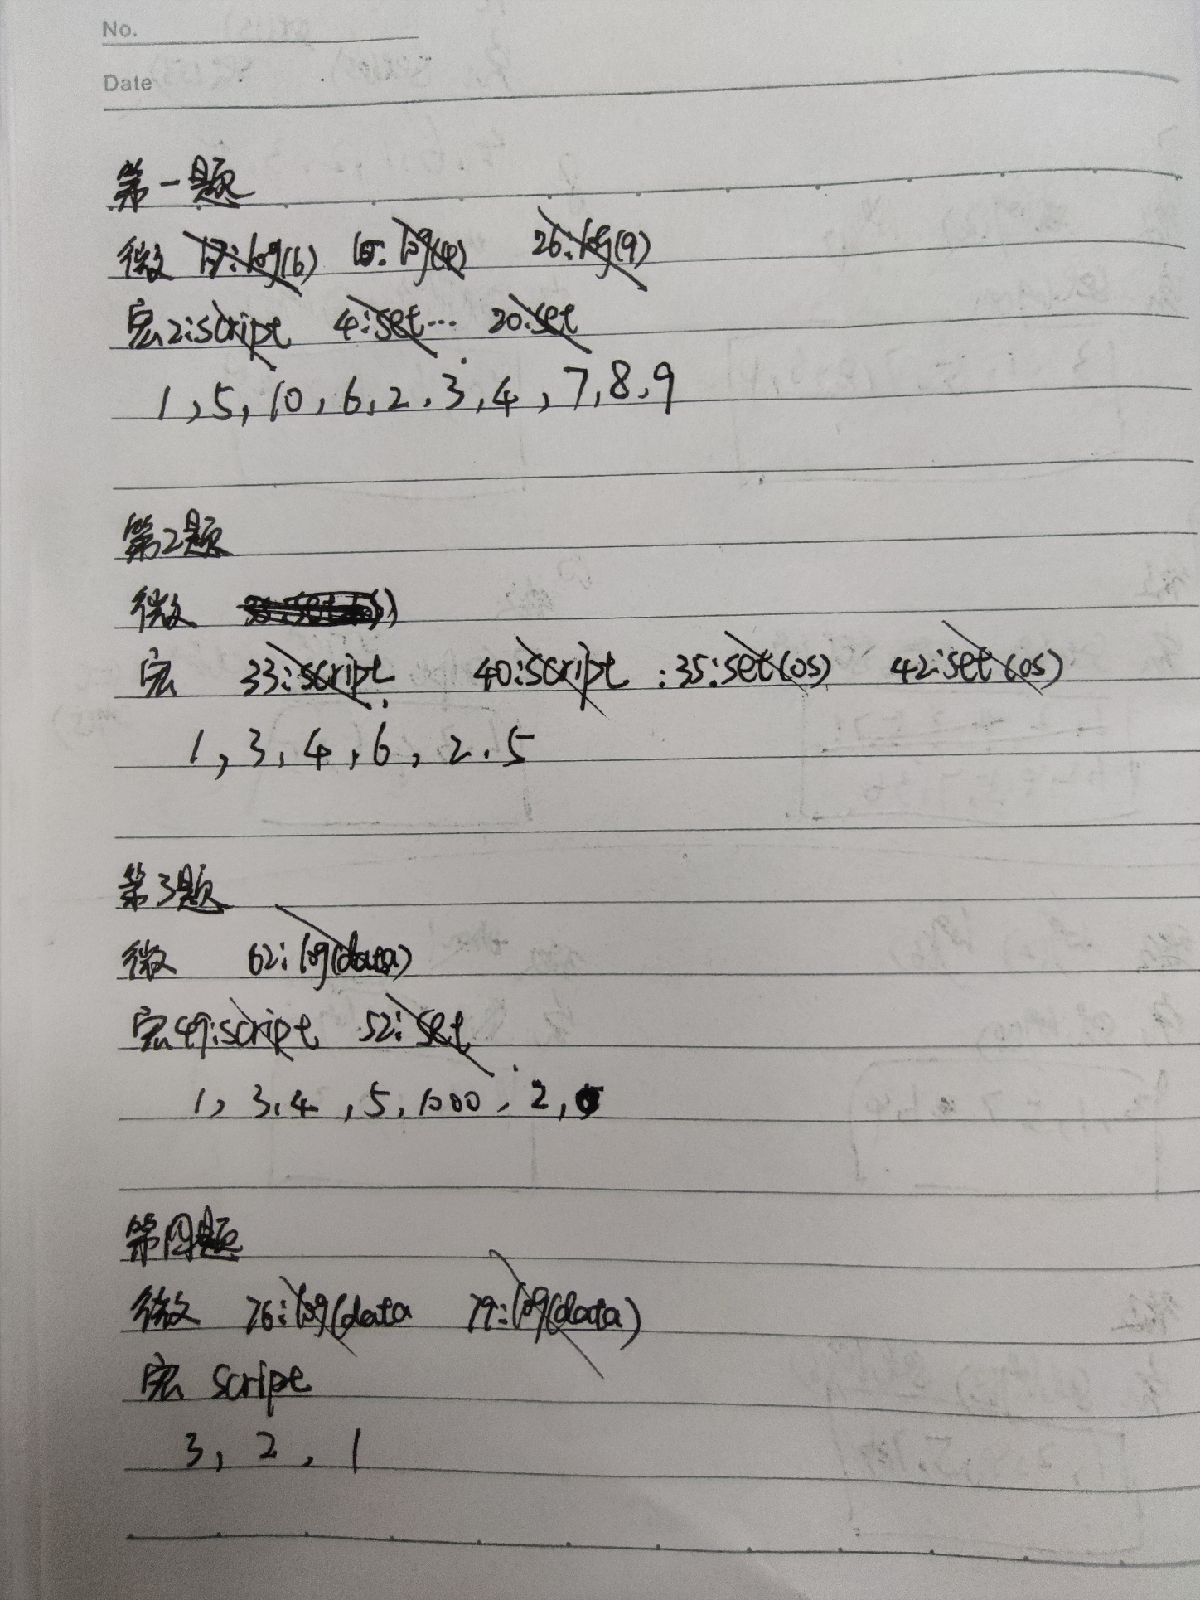 No.
Date
第一题
微 17:log(6) 15:log(4) 26:log(9)
宏2:script 4:set... 20:set
1,5,10,6,2,3,4,7,8,9
第2题
微
宏 33:script 40:script :35:set(os) 42:set(os)
1,3,4,6,2,5
第3题
微 62:log(data)
宏49:script 52:set
1,3,4,5,1000,2,
第四题
微 76:log(data 79:log(data)
宏 script
3,2,1